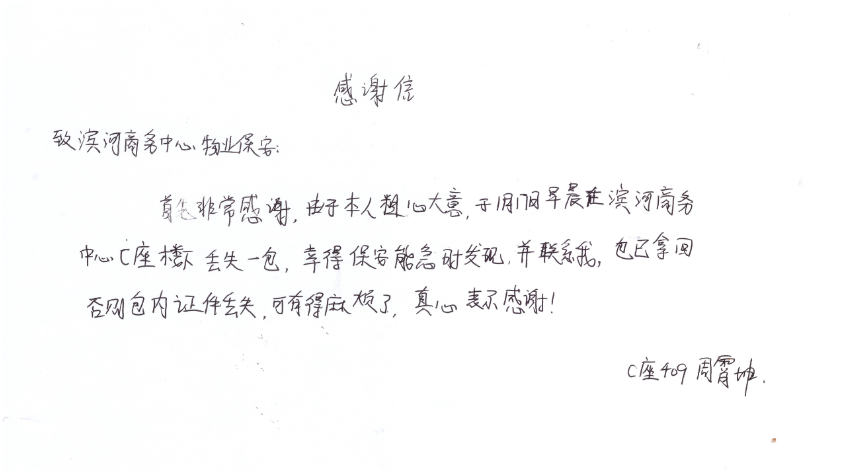 感谢信
致滨河商务中心物业保安:
首先非常感谢,由于本人粗心大意,于1月17日早晨在滨河商务
中心C座楼下丢失一包,幸得保安能急时发现,并联系我,包已拿回
否则包内证件丢失,可有得麻烦了,真心表示感谢!
C座409 周霄坤.